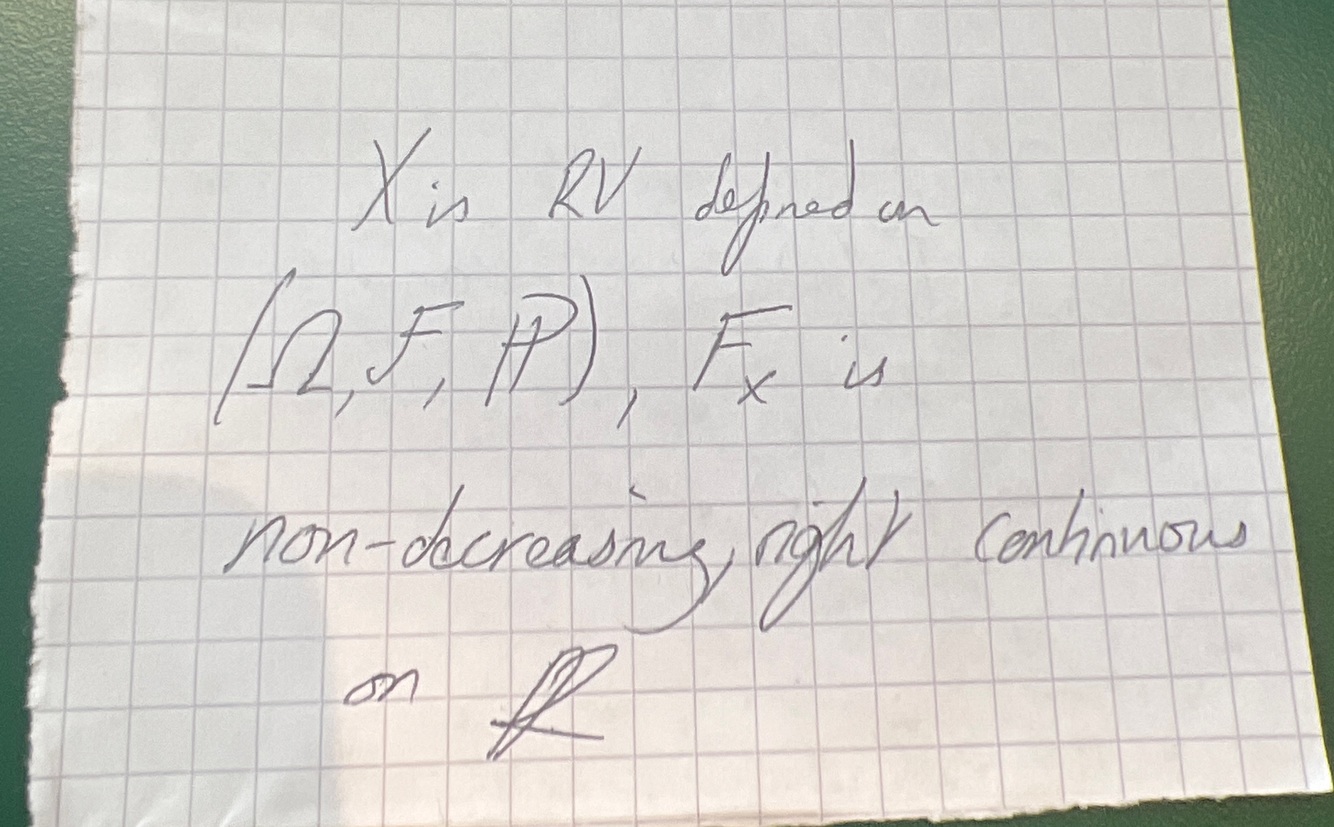 X is RV defined on
(Ω, F, ℙ), Fₓ is
non-decreasing, right continuous
on ℝ